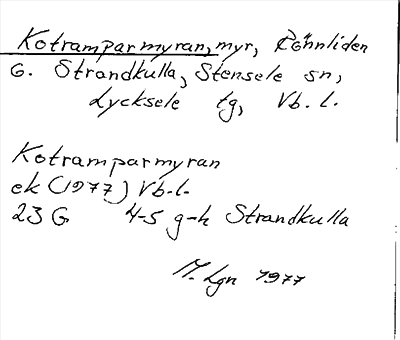 Kotramparmyran, myr, Rönnliden
G. Strandkulla, Stensele sn,
Lycksele tg, Vb. l.
Kotramparmyran
ek (1977) Vb.l.
23 G 4-5 g-h Strandkulla
M. Lgn 1977